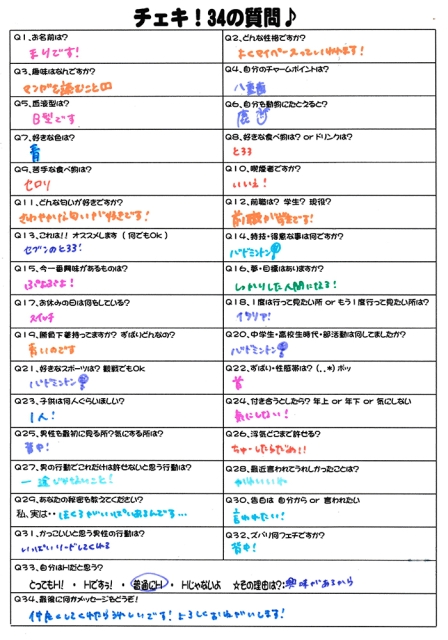 チェキ！34の質問♪
Q1、お名前は？
まりです！
Q2、どんな性格ですか？
よくマイペースっていわれます！
Q3、趣味はなんですか？
マンガを読むこと
Q4、自分のチャームポイントは？
八重歯
Q5、血液型は？
B型です
Q6、自分を動物にたとえると？
鹿
Q7、好きな色は？
青
Q8、好きな食べ物は？ or ドリンクは？
とろろ
Q9、苦手な食べ物は？
セロリ
Q10、喫煙者ですか？
いいえ！
Q11、どんな匂いが好きですか？
さわやかな匂いが好きです！
Q12、前職は？ 学生？ 現役？
Q13、これは！！ オススメします（何でもOk）
セブンのとろろ！
Q14、特技・得意な事は何ですか？
バドミントン
Q15、今一番興味があるものは？
ぷよぷよ！
Q16、夢・目標はありますか？
しっかりした人間になる！
Q17、お休みの日は何をしている？
スイッチ
Q18、1度は行って見たい所 or もう1度行って見たい所は？
イタリア！
Q19、勝負下着持ってますか？ ずばりどんなの？
青いのです
Q20、中学生・高校生時代・部活動は何してましたか？
バドミントン
Q21、好きなスポーツは？ 観戦でもOk
バドミントン
Q22、ずばり・性感帯は？(..*) ポッ
首
Q23、子供は何人ぐらいほしい？
1人！
Q24、付き合うとしたら？ 年上 or 年下 or 気にしない
気にしない！
Q25、男性を最初に見る所？気にする所は？
背中！
Q26、浮気どこまで許せる？
ちゅーしたらだめ！！
Q27、男の行動でこれだけは許せないと思う行動は？
一途じゃないこと！
Q28、最近言われてうれしかったことは？
かわいいね
Q29、あなたの秘密を教えてください？
私、実は・・ほくろがいっぱいあるんです…
Q30、告白は 自分から or 言われたい
言われたい！
Q31、かっこいいと思う男性の行動は？
いっぱいリードしてくれる
Q32、ズバリ何フェチですか？
背中！
Q33、自分はHだと思う？
とってもH！ ・ Hですっ！ ・ 普通にH ・ Hじゃないよ ☆その理由は？：興味があるから
Q34、最後に何かメッセージをどうぞ！
仲良くしてくれたらうれしいです！よろしくおねがいします！